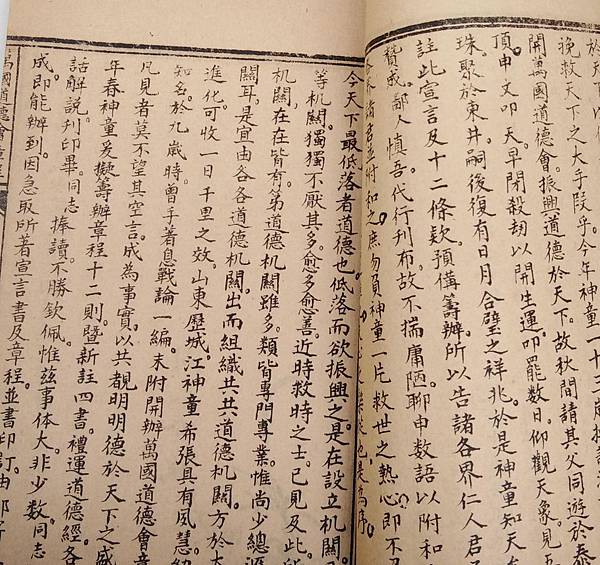 挽救天下之大手段乎。今年神童一十二歲
開萬國道德會。振興道德於天下。故秋間請其父同遊於泰
頂。申文叩天。早閉殺劫以開生運。叩罷數日。仰觀天象。見
珠聚於東井。嗣後復有日月合璧之祥兆。於是神童知天
註此宣言及十二條欵。預備籌辦。所以告諸各界仁人君
贊成。鄙人慎吾。代行刊布。故不揣庸陋。聊申数語以附和
諸君並附和之。庶勿負神童一片救世之熱心。即不
今天下最低落者道德也。低落而欲振興之。是在設立机關。
等机關。獨獨不厭其多。愈多愈善。近時救時之士。已見及此。所
机關。在在皆有。第道德机關雖多。類皆專門專業。惟尚少總滙
關耳。是宜由各各道德机關。出而組織共共道德机關。方於大
進化。可收一日千里之效。山東歷城江神童希張具有夙慧。幼
知名。於九歲時。曾手著息戰論一編。末附開辦萬國道德會章
凡見者莫不望其空言。成為事實。以共覩明明德於天下之盛
年春神童爰擬籌辦章程十二則。暨新註四書。禮運道德經。各
話解說。刊印畢。同志捧讀。不勝欽佩。惟兹事体大。非少数同志
成。即能辦到。因急取所著宣言書及章程。並書印訂。由鄙
萬國道德會